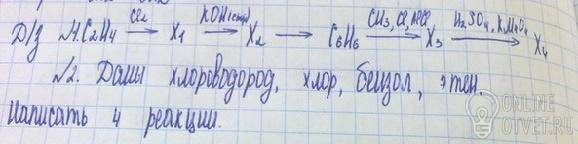 Д/з №1. C2H4 Cl2→ X1 KOH(спирт)→ X2 → C6H6 CH3Cl, AlCl3→ X3 H2SO4, KMnO4→ X4
№2. Даны хлороводород, хлор, бензол, этен.
Написать 4 реакции.
ONLINE
OTVET.RU